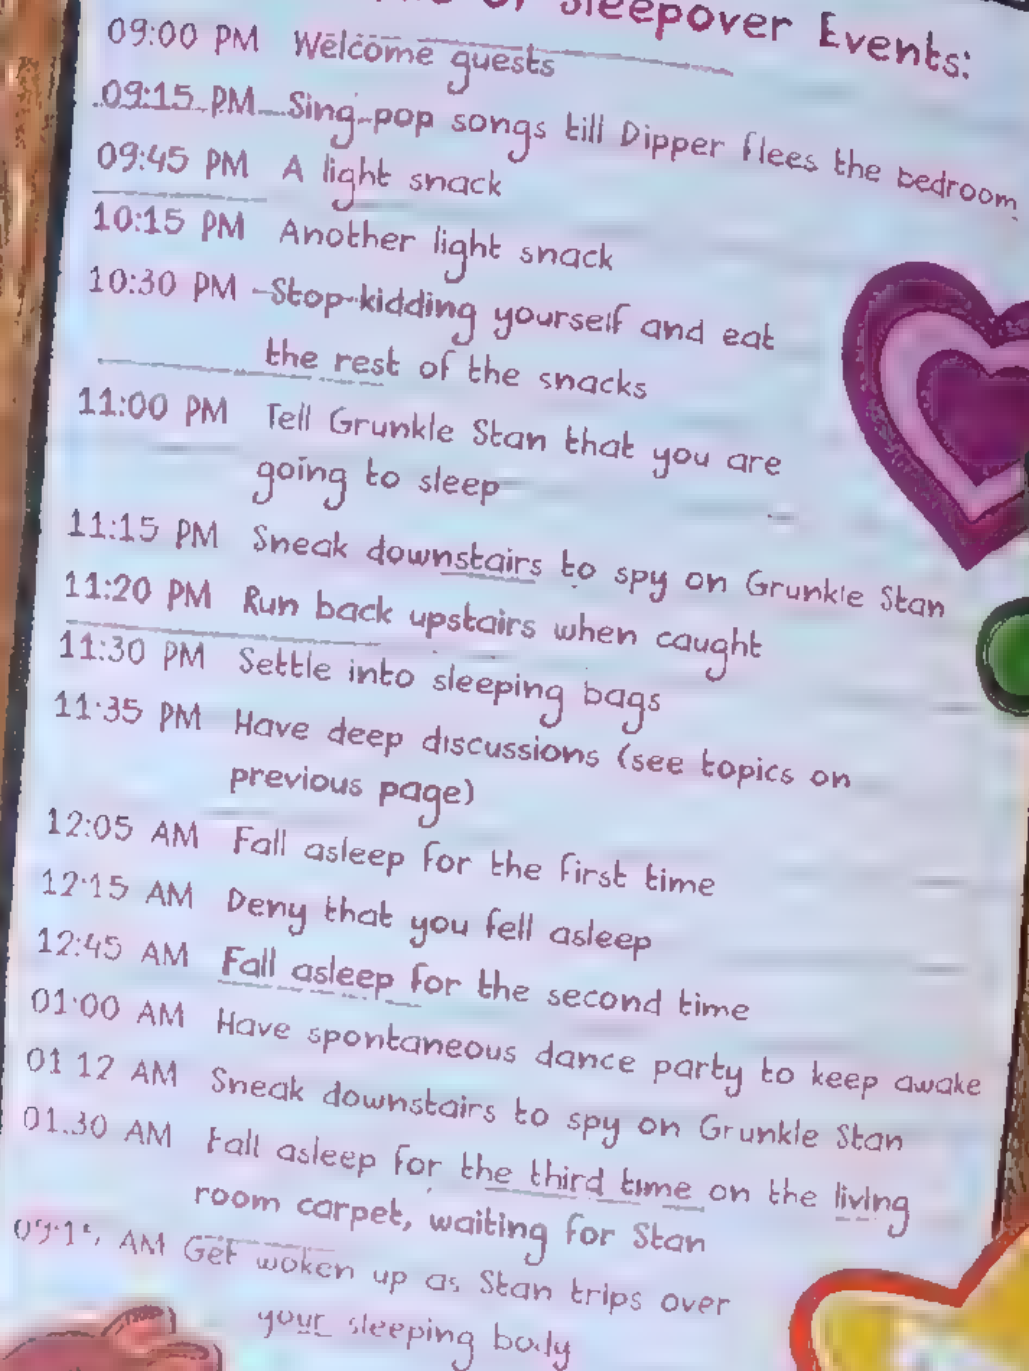 Sleepover Events:
09:00 PM Welcome guests
09:15 PM Sing pop songs till Dipper flees the bedroom
09:45 PM A light snack
10:15 PM Another light snack
10:30 PM Stop kidding yourself and eat
the rest of the snacks
11:00 PM Tell Grunkle Stan that you are
going to sleep
11:15 PM Sneak downstairs to spy on Grunkle Stan
11:20 PM Run back upstairs when caught
11:30 PM Settle into sleeping bags
11:35 PM Have deep discussions (see topics on
previous page)
12:05 AM Fall asleep for the first time
12:15 AM Deny that you fell asleep
12:45 AM Fall asleep for the second time
01:00 AM Have spontaneous dance party to keep awake
01:12 AM Sneak downstairs to spy on Grunkle Stan
01:30 AM Fall asleep for the third time on the living
room carpet, waiting for Stan
AM Get woken up as Stan trips over
your sleeping body